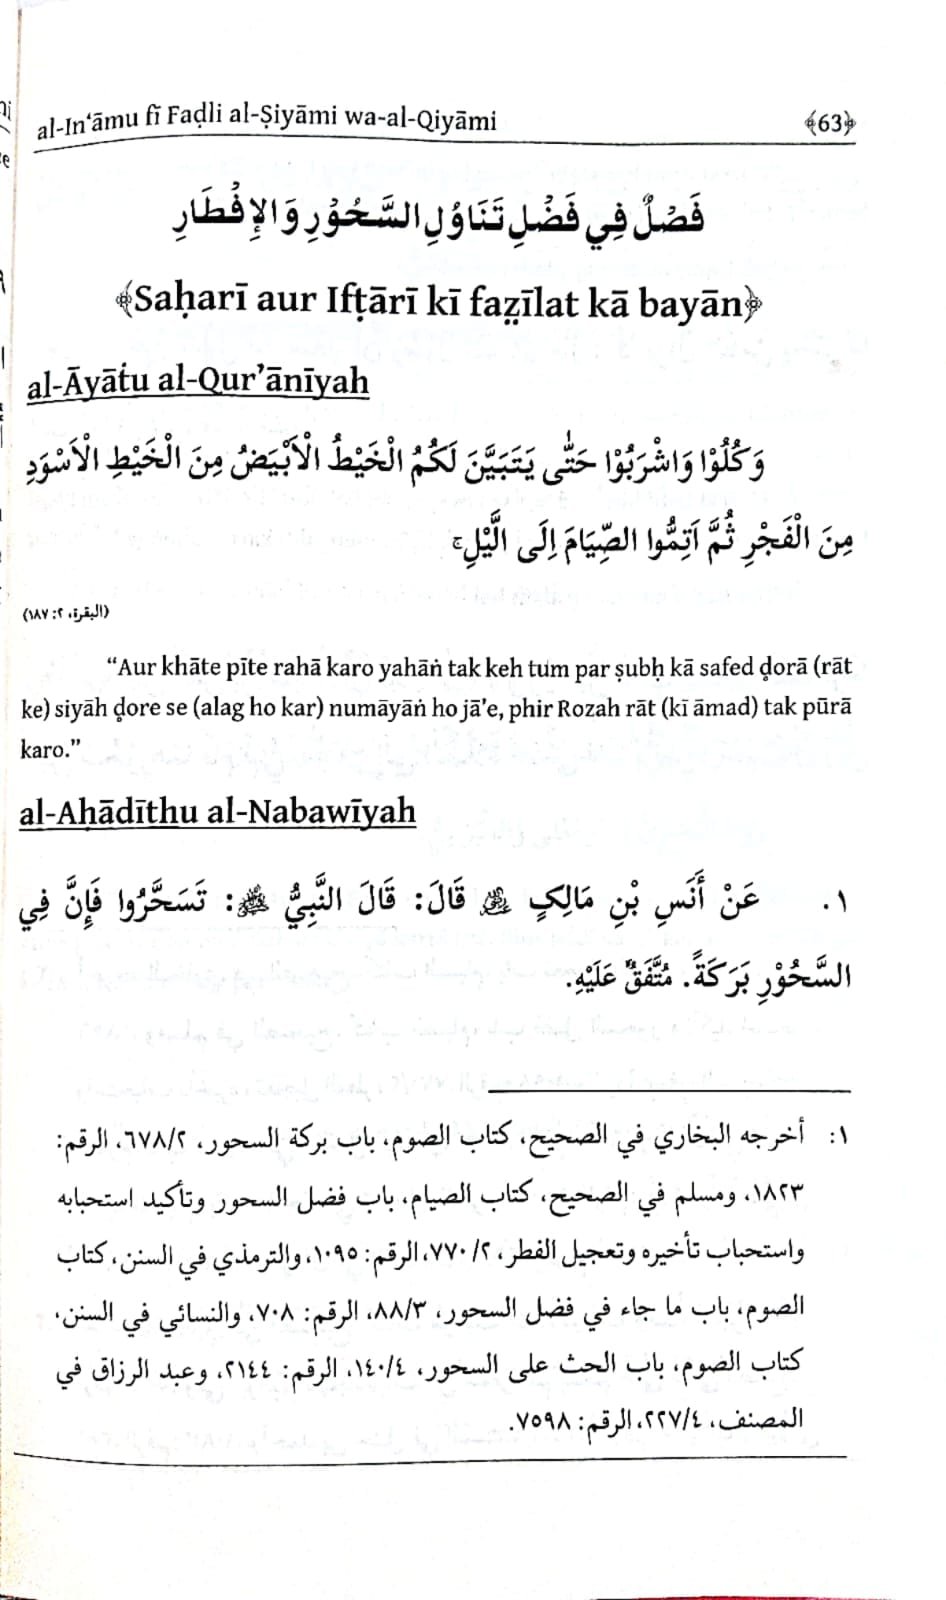 al-In‘āmu fī Faḍli al-Ṣiyāmi wa-al-Qiyāmi ﴾63﴿
فَصْلٌ فِي فَضْلِ تَنَاوُلِ السَّحُوْرِ وَالإِفْطَارِ
﴾Saḥarī aur Ifṭārī kī fazīlat kā bayān﴿
al-Āyātu al-Qur’ānīyah
وَكُلُوْا وَاشْرَبُوْا حَتّٰى يَتَبَيَّنَ لَكُمُ الْخَيْطُ الْاَبْيَضُ مِنَ الْخَيْطِ الْاَسْوَدِ
مِنَ الْفَجْرِ ثُمَّ اَتِمُّوا الصِّيَامَ اِلَى الَّيْلِ ج
(البقرة، ٢: ١٨٧)
“Aur khāte pīte rahā karo yahāṅ tak keh tum par ṣubḥ kā safed ḍorā (rāt
ke) siyāh ḍore se (alag ho kar) numāyāṅ ho jā’e, phir Rozah rāt (kī āmad) tak pūrā
karo.”
al-Aḥādīthu al-Nabawīyah
١. عَنْ أَنَسِ بْنِ مَالِکٍ ﷺ قَالَ: قَالَ النَّبِيُّ ﷺ: تَسَحَّرُوا فَإِنَّ فِي
السَّحُوْرِ بَرَكَةً. مُتَّفَقٌ عَلَيْهِ.
١: أخرجه البخاري في الصحيح، كتاب الصوم، باب بركة السحور، ٦٧٨/٢، الرقم:
١٨٢٣، ومسلم في الصحيح، كتاب الصيام، باب فضل السحور وتأكيد استحبابه
واستحباب تأخيره وتعجيل الفطر، ٧٧٠/٢، الرقم: ١٠٩٥، والترمذي في السنن، كتاب
الصوم، باب ما جاء في فضل السحور، ٨٨/٣، الرقم: ٧٠٨، والنسائي في السنن،
كتاب الصوم، باب الحث على السحور، ١٤٠/٤، الرقم: ٢١٤٤، وعبد الرزاق في
المصنف، ٢٢٧/٤، الرقم: ٧٥٩٨.